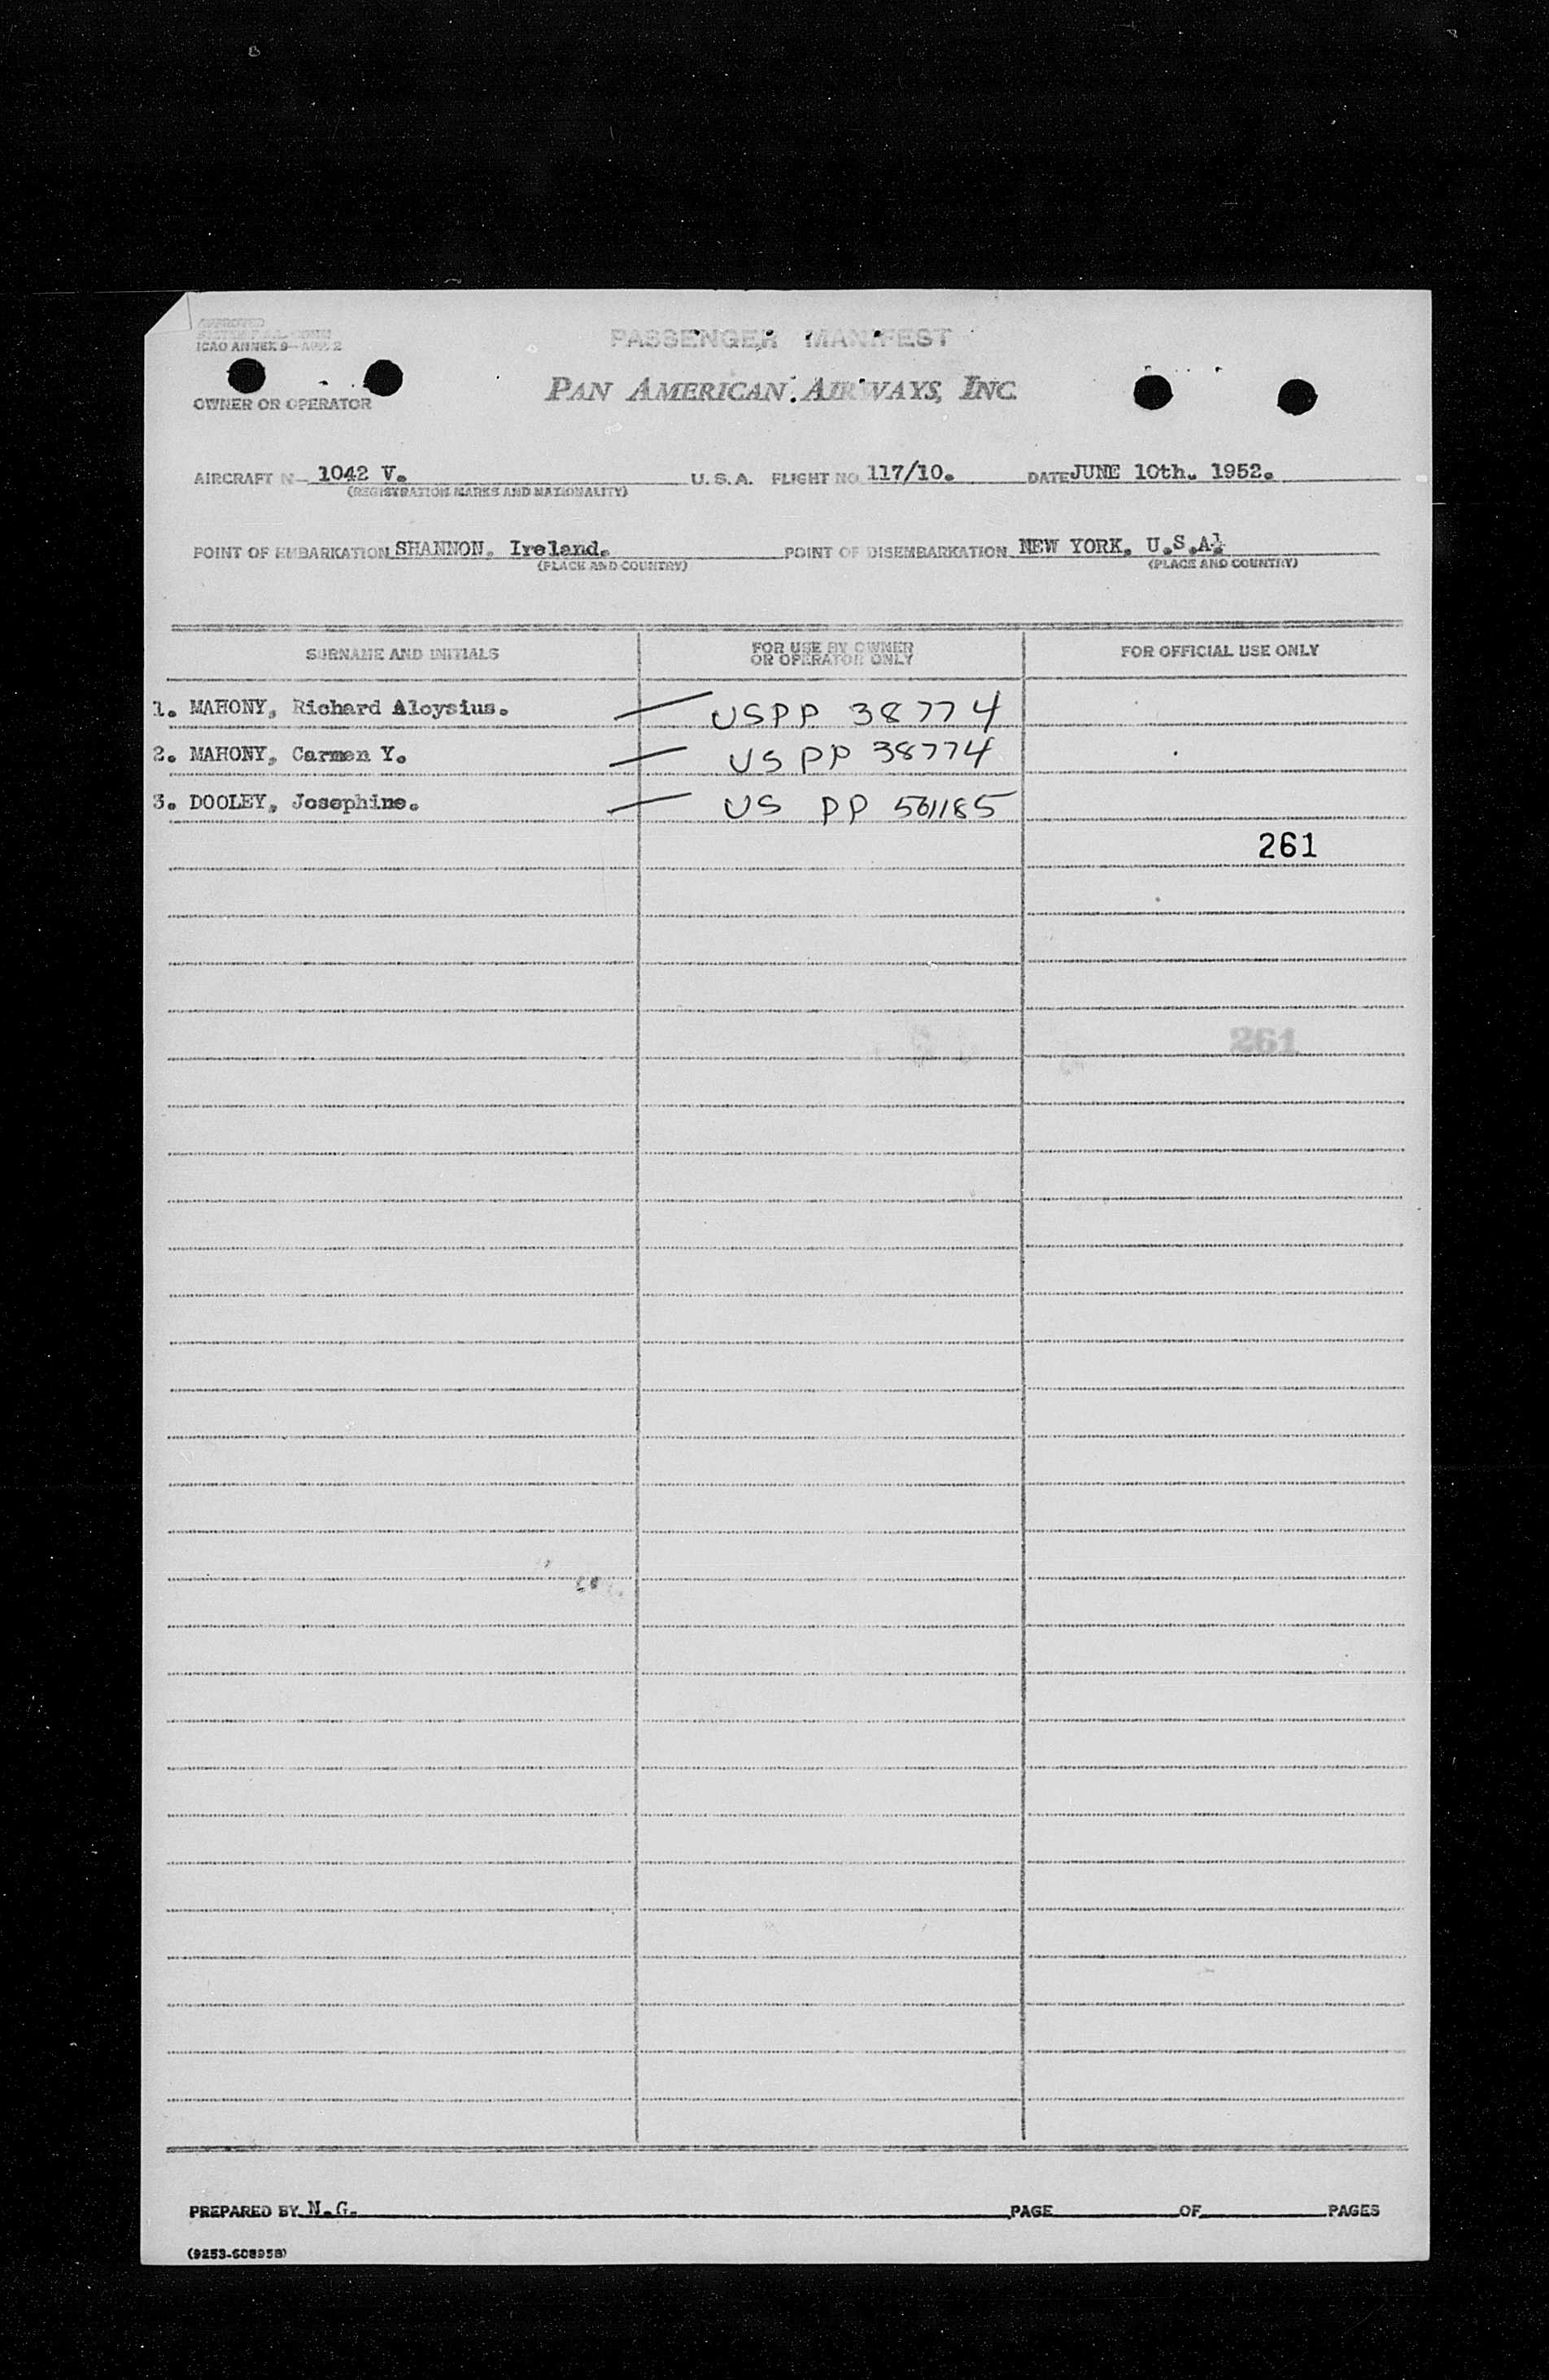 APPROVED
ICAO ANNEX 9—APP. 2
PASSENGER MANIFEST
PAN AMERICAN AIRWAYS, INC.
OWNER OR OPERATOR
AIRCRAFT N— 1042 V. U. S. A. FLIGHT NO. 117/10. DATE JUNE 10th. 1952.
(REGISTRATION MARKS AND NATIONALITY)
POINT OF EMBARKATION SHANNON. Ireland. POINT OF DISEMBARKATION NEW YORK. U.S.A.
(PLACE AND COUNTRY) (PLACE AND COUNTRY)
SURNAME AND INITIALS FOR USE BY OWNER OR OPERATOR ONLY FOR OFFICIAL USE ONLY
1. MAHONY, Richard Aloysius. — USPP 38774
2. MAHONY, Carmen Y. — US PP 38774
3. DOOLEY, Josephine. — US PP 561185
261
261
PREPARED BY N.G. PAGE OF PAGES